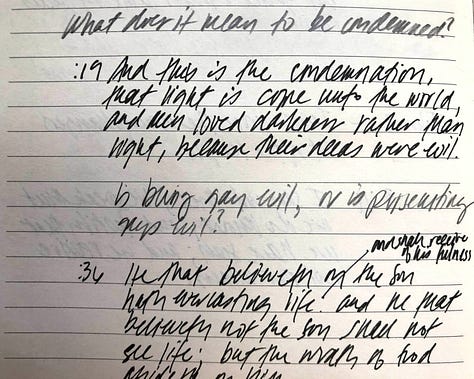 What does it mean to be condemned?
:19 And this is the condemnation,
that light is come unto the world,
and men loved darkness rather than
light, because their deeds were evil.
Is being gay evil, or is persecuting
gays evil?
and shall receive
of his fulness
:36 He that believeth on the son
hath everlasting life. and he that
believeth not the son shall not
see life; but the wrath of God
abideth on him